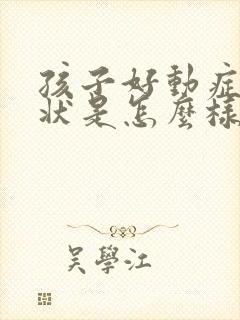 孩子好動症
狀是怎麼樣
吳學江